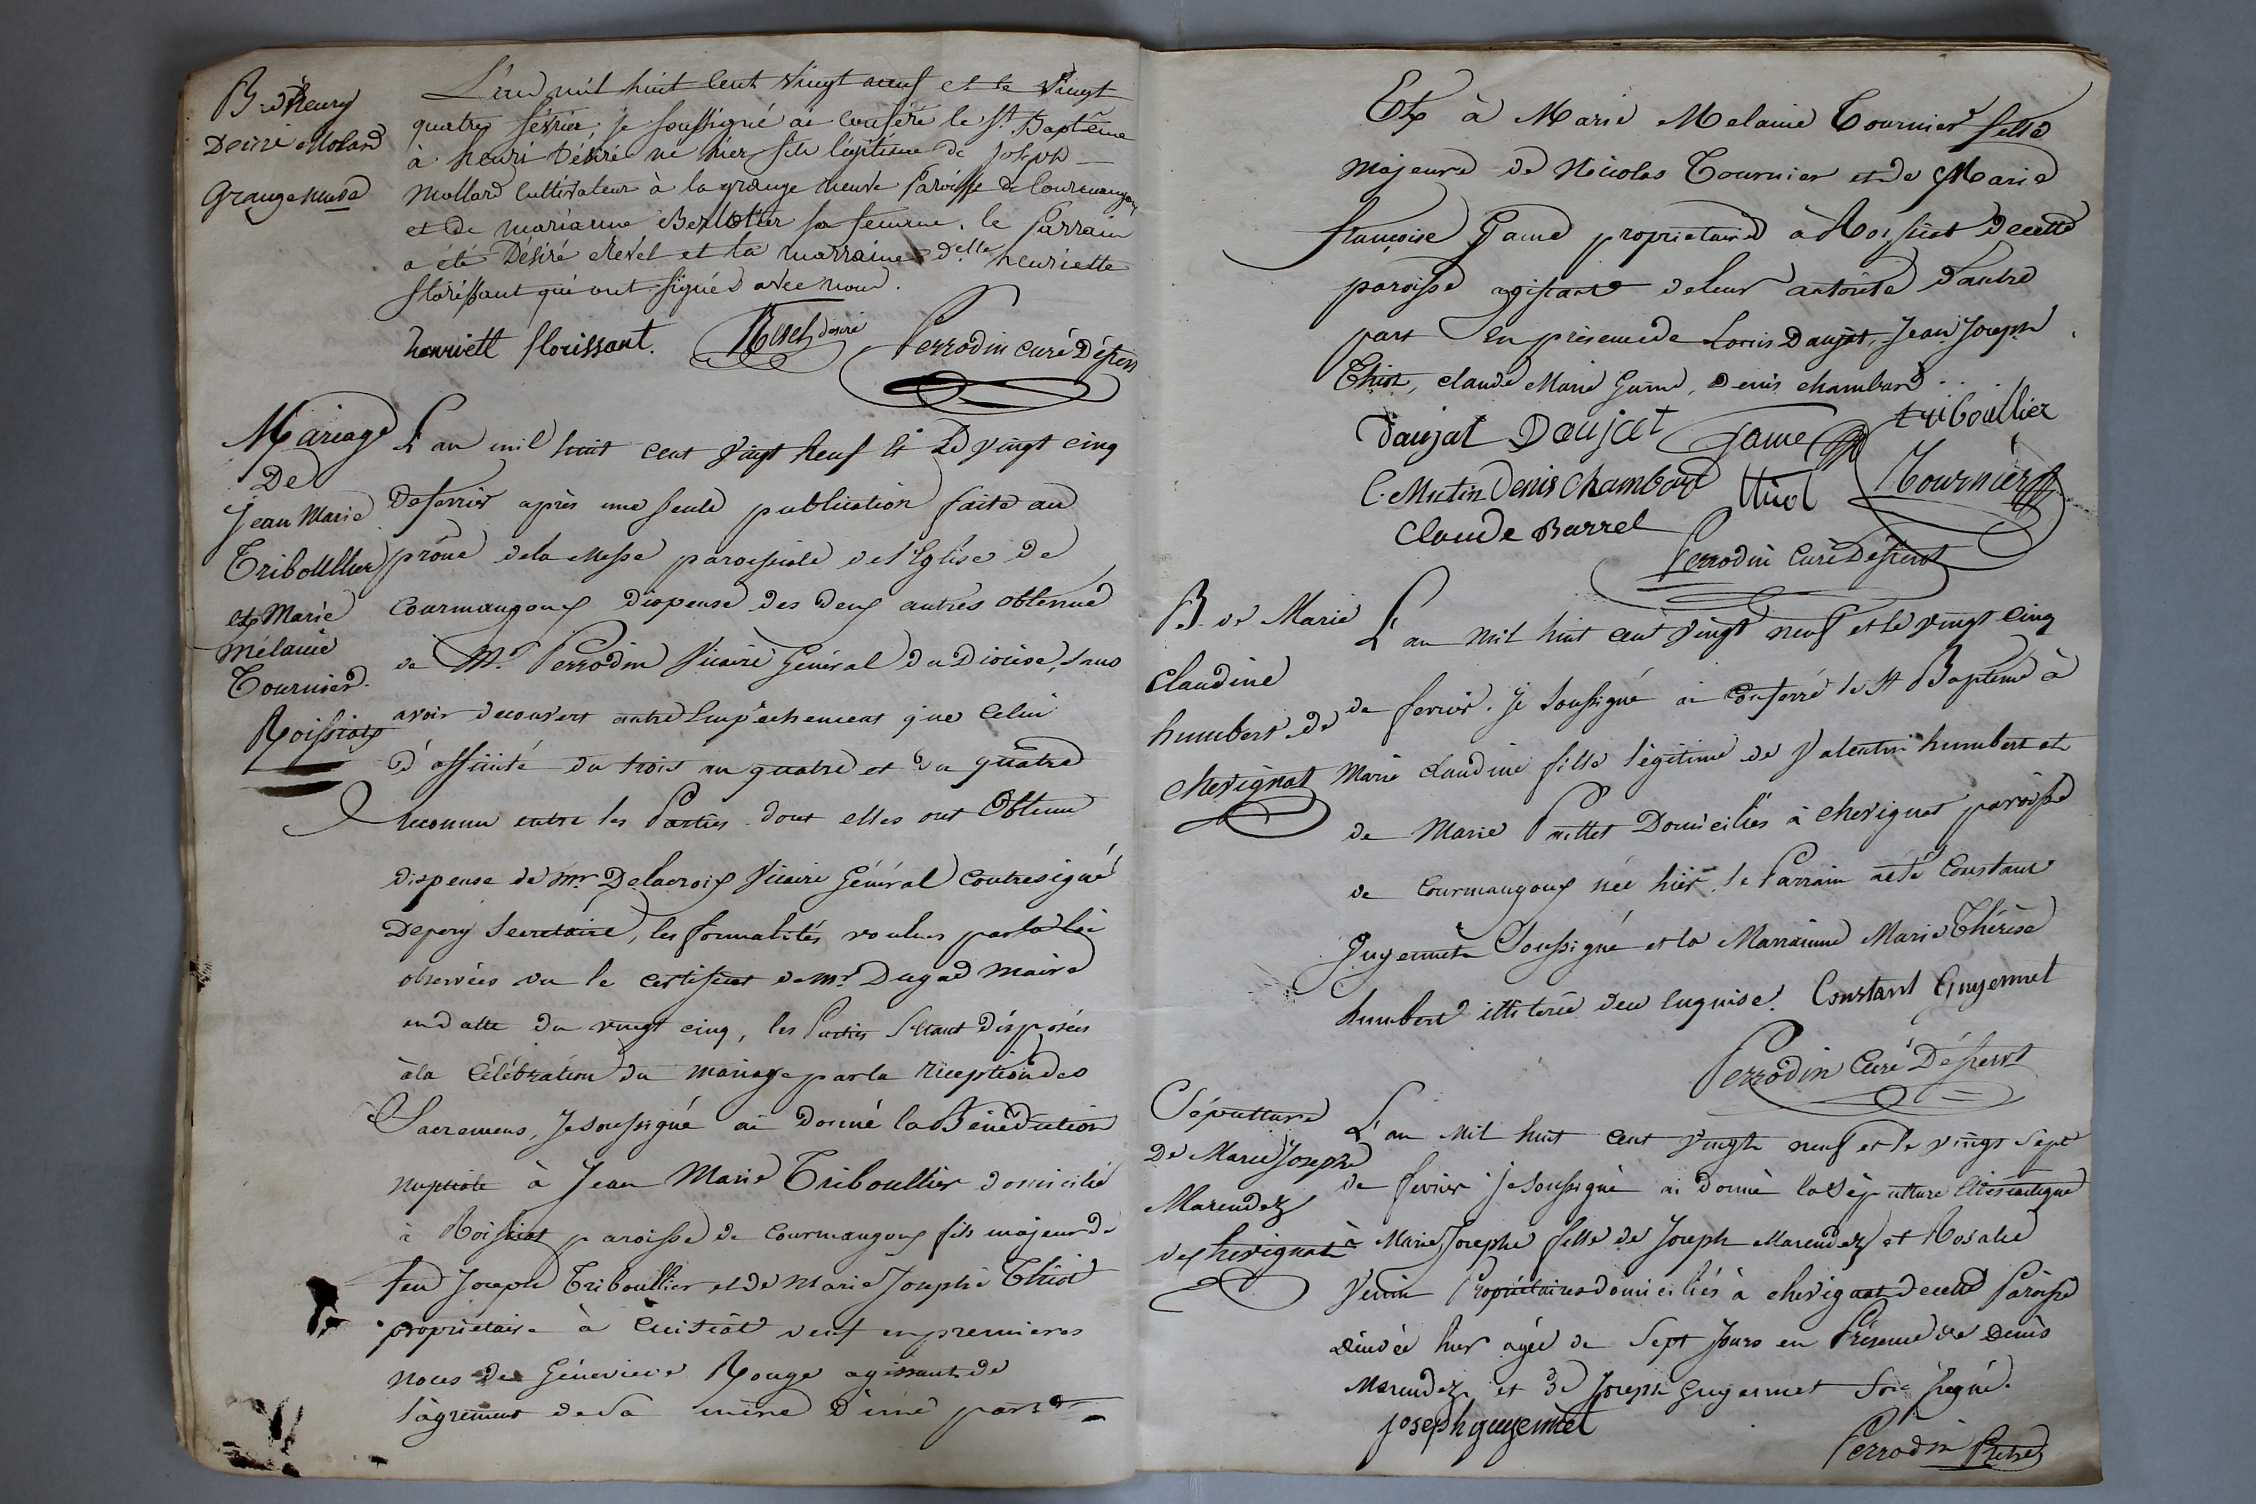 B. d'henry
Desiré Molard
Grange neuve
L'an mil huit cent vingt neuf et le vingt
quatre fevrier, je soussigné ai conféré le St. Baptême
à henri Désiré né hier fils légitime de joseph
Mollard cultivateur à la grange neuve Paroisse de Courmangoux
et de marianne Berlotier sa femme. le Parrain
a été Désiré Revel et la marraine delle henriette
florissant qui ont signés avec nous.
henriett florissant. Revel désiré Perrodin curé Desserv
Mariage
De
Jean Marie
Triboullier
et Marie
Mélanie
Tournier.
Roissiat
L'an mil huit cent vingt neuf et le vingt cinq
de fevrier après une seule publication faite au
prône de la messe paroissiale de l'Eglise de
Courmangoux dispense des deux autres obtenue
de Mr. Perrodin Vicaire Général du Diocèse, sans
avoir decouvert autre Empêchement que celui
d'affinité du trois au quatre et du quatre
reconnu entre les Parties dont elles ont obtenu
dispense de mr Delacroix Vicaire Général Contresigné
Depery Secretaire, les formalités voulues par la loi
observées vu le certificat de mr. Dugad maire
en date du vingt cinq, les Parties s'étant disposées
à la Célébration du mariage par la reception des
Sacremens, Je soussigné ai donné la Bénédiction
nuptiale à Jean Marie Triboullier domicilié
à Roissiat paroisse de Courmangoux fils majeur de
feu Joseph Triboullier et de Marie Josephe Thiot
propriétaire à Cuisiat veuf en premieres
noces de Génevieve Rouge agissant de
l'agrément de sa mère d'une part
Et à Marie Melanie Tournier fille
majeure de Nicolas Tournier et de Marie
françoise Game proprietaires à Roissiat de cette
paroisse agissante de leur autorité d'autre
part En présence de Louis Daujat, Jean Joseph
Thiot, claude Marie Game, Denis chambard
Daujat Daujat Game triboullier
C. Mutin Denis Chambard thiot Tournier
Claude Barrel
Perrodin Curé Desservt
B. de Marie
Claudine
humbert de
chevignat
L'an mil huit cent vingt neuf et le vingt cinq
de fevrier. je soussigné ai conferré le St Baptême à
Marie claudine fille légitime de Valentin humbert et
de Marie Paillet Domiciliés à chevignat paroisse
de Courmangoux née hier. le Parrain a été Constant
Guyennet Soussigné et la Marrainne Marie Thérèse
humbert illiterée de ce enquise. Constant Guyennet
Perrodin Curé Desservt
Sépulture
De Marie Joseph
Marendez
de chevignat
L'an mil huit cent vingt neuf et le vingt sept
de fevrier je soussigné ai donné la Sépulture Eclésiastique
à Marie Josephe fille de Joseph Marendez et Rosalie
Propriétaires domiciliés à chevignat de cette Paroisse
décédée hier agée de Sept Jours en Présence de Denis
Marendez et de Joseph Guyennet Soussigné.
joseph guyennet
Perrodin Prêtre